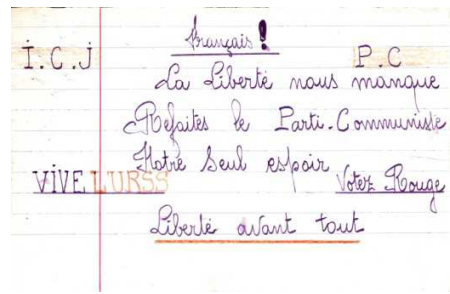 Français !
I.C.J
P.C
La Liberté nous manque
Refaites le Parti-Communiste
Notre Seul espoir
VIVE LURSS
Votez Rouge
Liberté avant tout